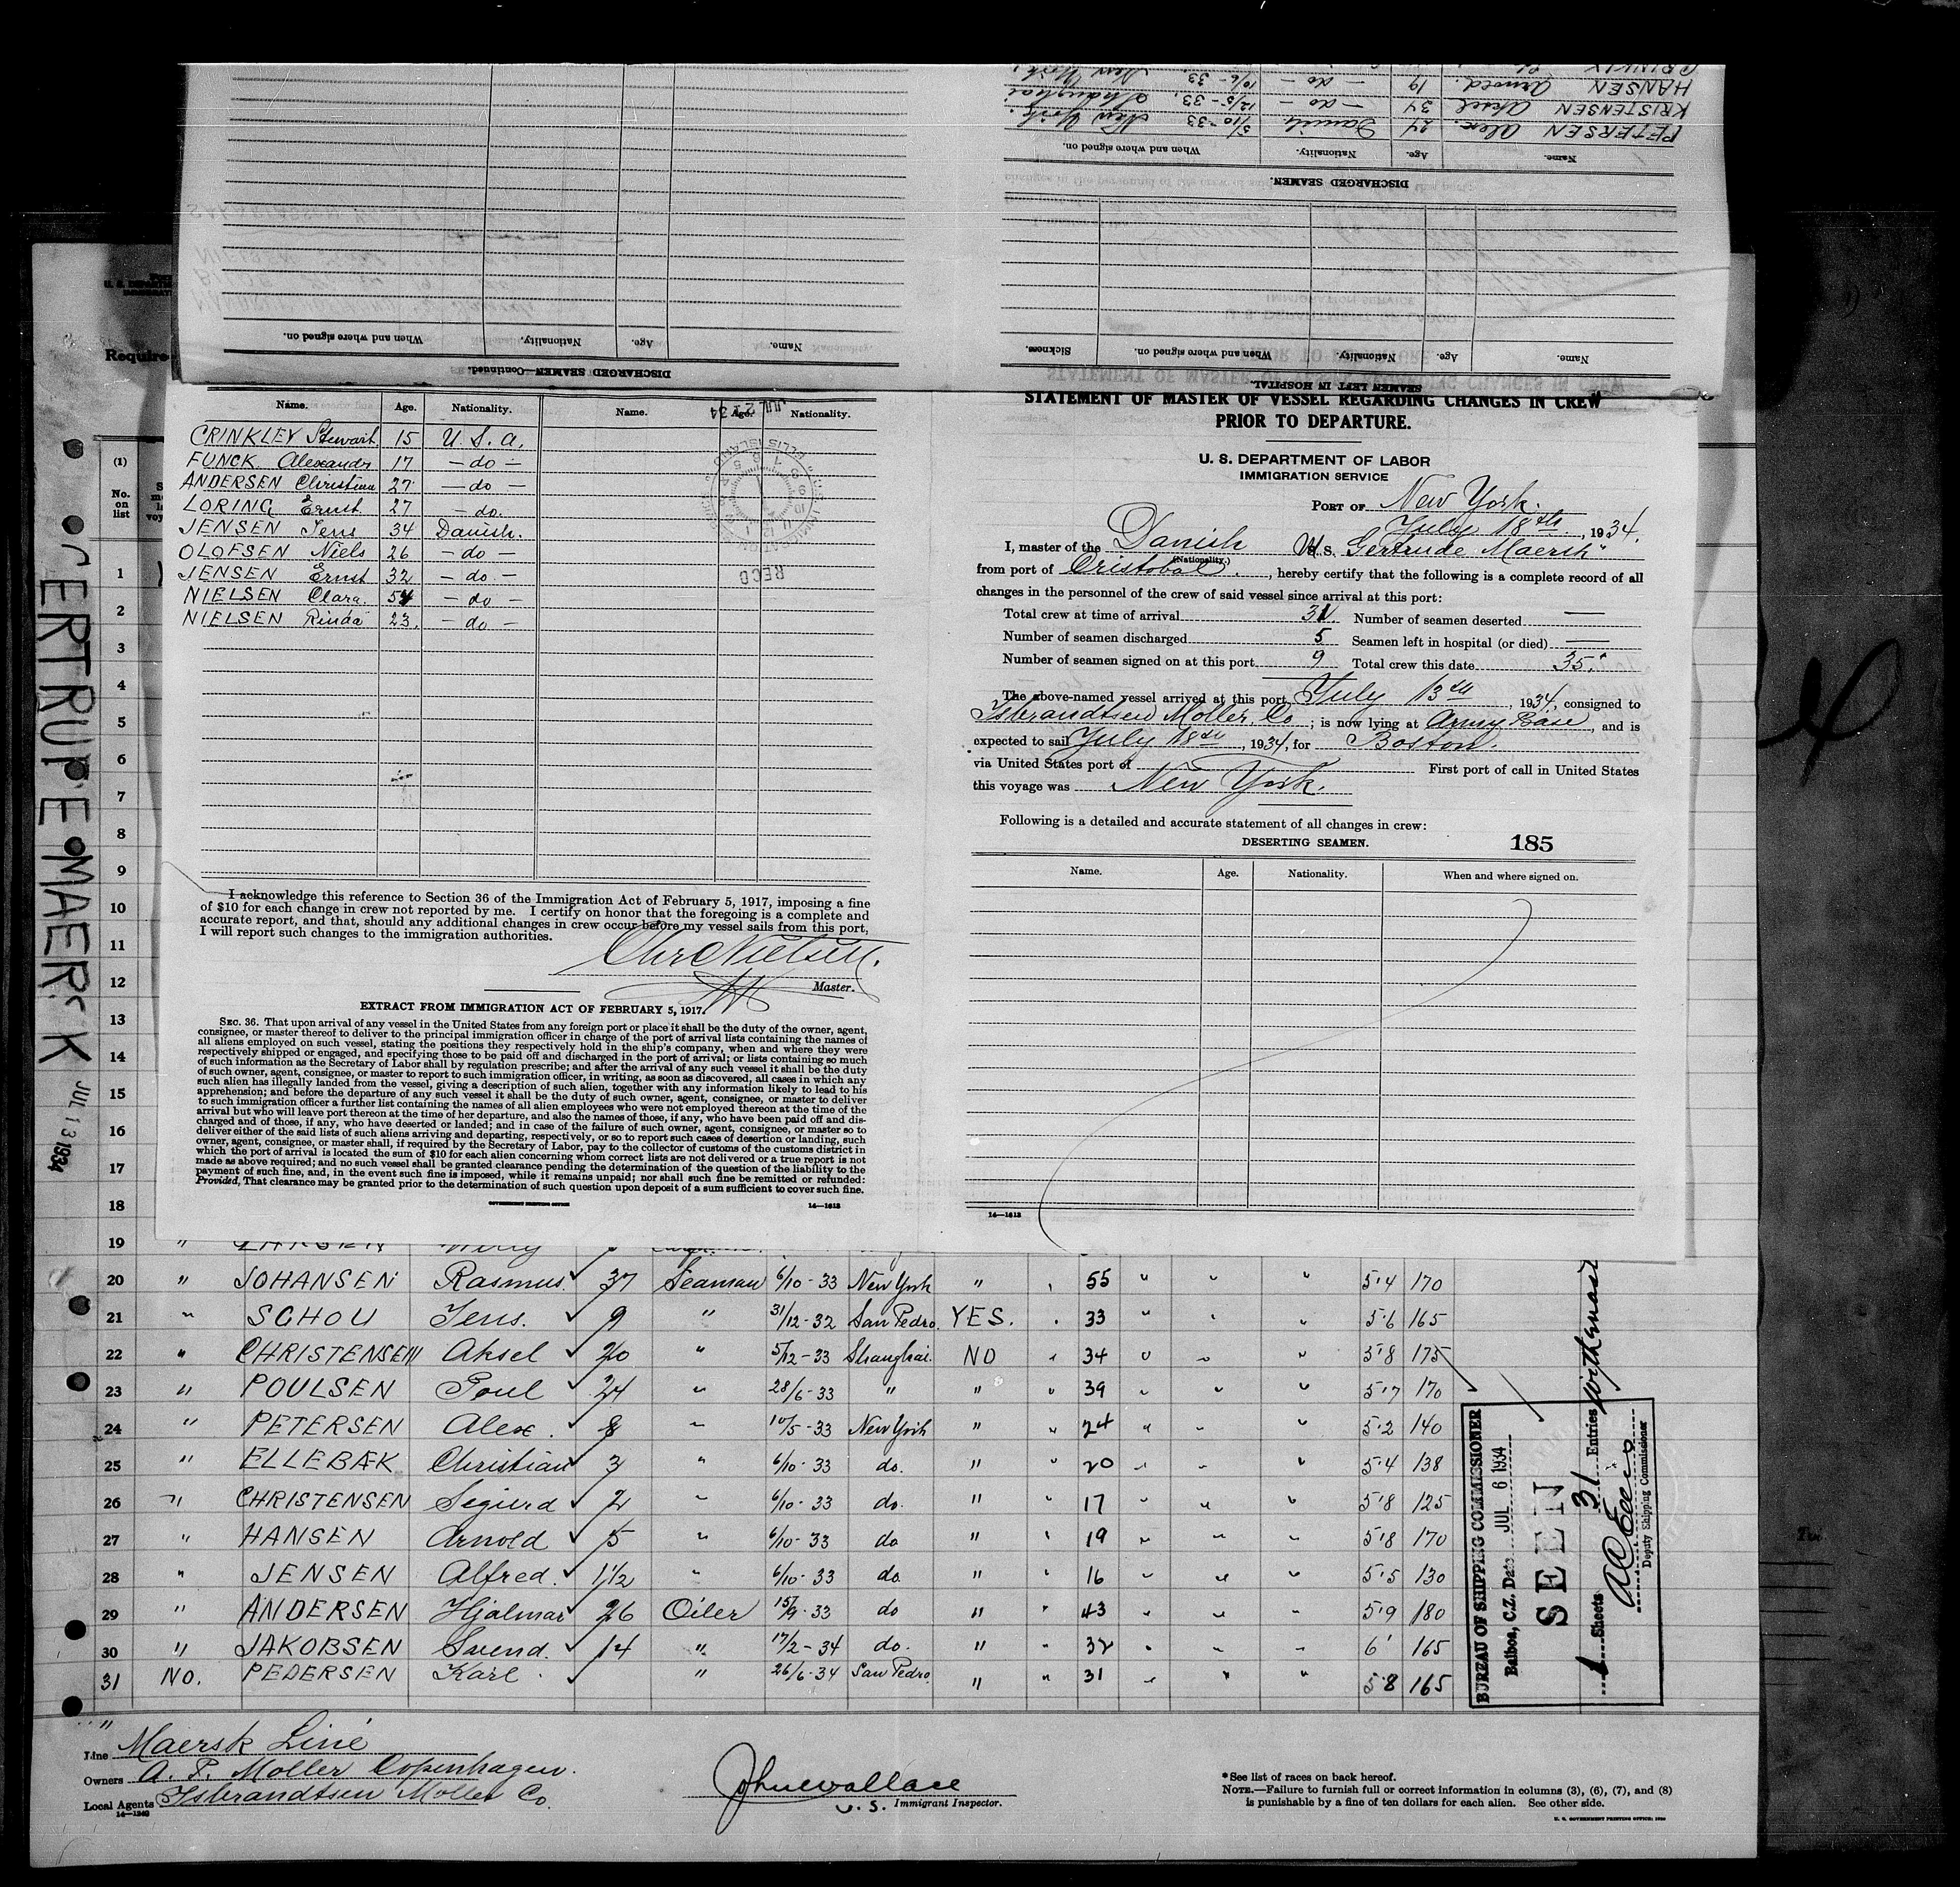 PETERSEN Alex. 24 Danish 5/10-33 New York.
KRISTENSEN Aksel 34 -do- 12/5-33, Shanghai
HANSEN Arnold. 19 -do- 10/6-33, New York
Name. Age. Nationality. When and where signed on.
DISCHARGED SEAMEN.
Name. Age. Nationality. When and where signed on. Sickness.
SEAMEN LEFT IN HOSPITAL.
Name. Age. Nationality. When and where signed on.
DISCHARGED SEAMEN—Continued.
Require
(1)
No. on list
GERTRUDE MAERSK JUL 13 1934
Name. Age. Nationality. Name. Age. Nationality.
JUL 21 34
CRINKLEY Stewart 15 U.S.A.
FUNCK Alexandr 17 -do-
ANDERSEN Christian 27 -do-
LORING Ernst 27 -do.
JENSEN Jens 34 Danish.
OLOFSEN Niels 26 -do-
JENSEN Ernst 32 -do-
NIELSEN Clara. 54 -do-
NIELSEN Rinda 23. -do-
RECD
I acknowledge this reference to Section 36 of the Immigration Act of February 5, 1917, imposing a fine
of $10 for each change in crew not reported by me. I certify on honor that the foregoing is a complete and
accurate report, and that, should any additional changes in crew occur before my vessel sails from this port,
I will report such changes to the immigration authorities.
Chr Nielsen.
Master.
EXTRACT FROM IMMIGRATION ACT OF FEBRUARY 5, 1917.
SEC. 36. That upon arrival of any vessel in the United States from any foreign port or place it shall be the duty of the owner, agent,
consignee, or master thereof to deliver to the principal immigration officer in charge of the port of arrival lists containing the names of
all aliens employed on such vessel, stating the positions they respectively hold in the ship's company, when and where they were
respectively shipped or engaged, and specifying those to be paid off and discharged in the port of arrival; or lists containing so much
of such information as the Secretary of Labor shall by regulation prescribe; and after the arrival of any such vessel it shall be the duty
of such owner, agent, consignee, or master to report to such immigration officer, in writing, as soon as discovered, all cases in which any
such alien has illegally landed from the vessel, giving a description of such alien, together with any information likely to lead to his
apprehension; and before the departure of any such vessel it shall be the duty of such owner, agent, consignee, or master to deliver
to such immigration officer a further list containing the names of all alien employees who were not employed thereon at the time of the
arrival but who will leave port thereon at the time of her departure, and also the names of those, if any, who have been paid off and dis-
charged and of those, if any, who have deserted or landed; and in case of the failure of such owner, agent, consignee, or master so to
deliver either of the said lists of such aliens arriving and departing, respectively, or so to report such cases of desertion or landing, such
owner, agent, consignee, or master shall, if required by the Secretary of Labor, pay to the collector of customs of the customs district in
which the port of arrival is located the sum of $10 for each alien concerning whom correct lists are not delivered or a true report is not
made as above required; and no such vessel shall be granted clearance pending the determination of the question of the liability to the
payment of such fine, and, in the event such fine is imposed, while it remains unpaid; nor shall such fine be remitted or refunded:
Provided, That clearance may be granted prior to the determination of such question upon deposit of a sum sufficient to cover such fine.
GOVERNMENT PRINTING OFFICE 14—1613
STATEMENT OF MASTER OF VESSEL REGARDING CHANGES IN CREW
PRIOR TO DEPARTURE.
U. S. DEPARTMENT OF LABOR
IMMIGRATION SERVICE
PORT OF New York.
July 18th, 1934.
I, master of the Danish M.S. Gertrude Maersk"
(Nationality.)
from port of Cristobal., hereby certify that the following is a complete record of all
changes in the personnel of the crew of said vessel since arrival at this port:
Total crew at time of arrival 31. Number of seamen deserted —
Number of seamen discharged 5 Seamen left in hospital (or died) —
Number of seamen signed on at this port 9 Total crew this date 35.
The above-named vessel arrived at this port July 13th, 1934, consigned to
Isbrandtsen Moller Co; is now lying at Army Base, and is
expected to sail July 18th, 1934, for Boston.
via United States port of First port of call in United States
this voyage was New York.
Following is a detailed and accurate statement of all changes in crew:
185
DESERTING SEAMEN.
Name. Age. Nationality. When and where signed on.
14—1613
1
2
3
4
5
6
7
8
9
10
11
12
13
14
15
16
17
18
19 " LARSEN Willy
20 " JOHANSEN Rasmus. 37 Seaman 6/10-33 New York " 55 " " " 5'4 170
21 " SCHOU Jens. 9 " 31/12-32 San Pedro. YES. 33 " " " 5'6 165
22 " CHRISTENSEN Aksel 20 " 5/12-33 Shanghai. NO " 34 " " " 5'8 175
23 " POULSEN Poul 24 " 28/6-33 " " " 39 " " " 5'7 170
24 " PETERSEN Alex. 8 " 10/5-33 New York " " 24 " " " 5'2 140
25 " ELLEBÆK Christian 3 " 6/10-33 do. " " 20 " " " 5'4 138
26 " CHRISTENSEN Sigurd 2 " 6/10-33 do. " " 17 " " " 5'8 125
27 " HANSEN Arnold 5 " 6/10-33 do " " 19 " " " 5'8 170
28 " JENSEN Alfred. 1 1/2 " 6/10-33 do. " " 16 " " " 5'5 130
29 " ANDERSEN Hjalmar 26 Oiler 15/9-33 do " " 43 " " " 5'9 180
30 " JAKOBSEN Svend. 14 " 17/2-34 do. " " 32 " " " 6' 165
31 NO. PEDERSEN Karl. " 26/6-34 San Pedro. " " 31 " " " 5'8 165
BUREAU OF SHIPPING COMMISSIONER
Balboa, C.Z. Date JUL 6 1934
SEEN
1 Sheets 31 Entries
Deputy Shipping Commissioner
Line Maersk Line
Owners A. P. Moller Copenhagen.
Local Agents Isbrandtsen Moller Co.
14—1240
John Wallace
U.S. Immigrant Inspector.
*See list of races on back hereof.
NOTE.—Failure to furnish full or correct information in columns (3), (6), (7), and (8)
is punishable by a fine of ten dollars for each alien. See other side.
U. S. GOVERNMENT PRINTING OFFICE: 1930